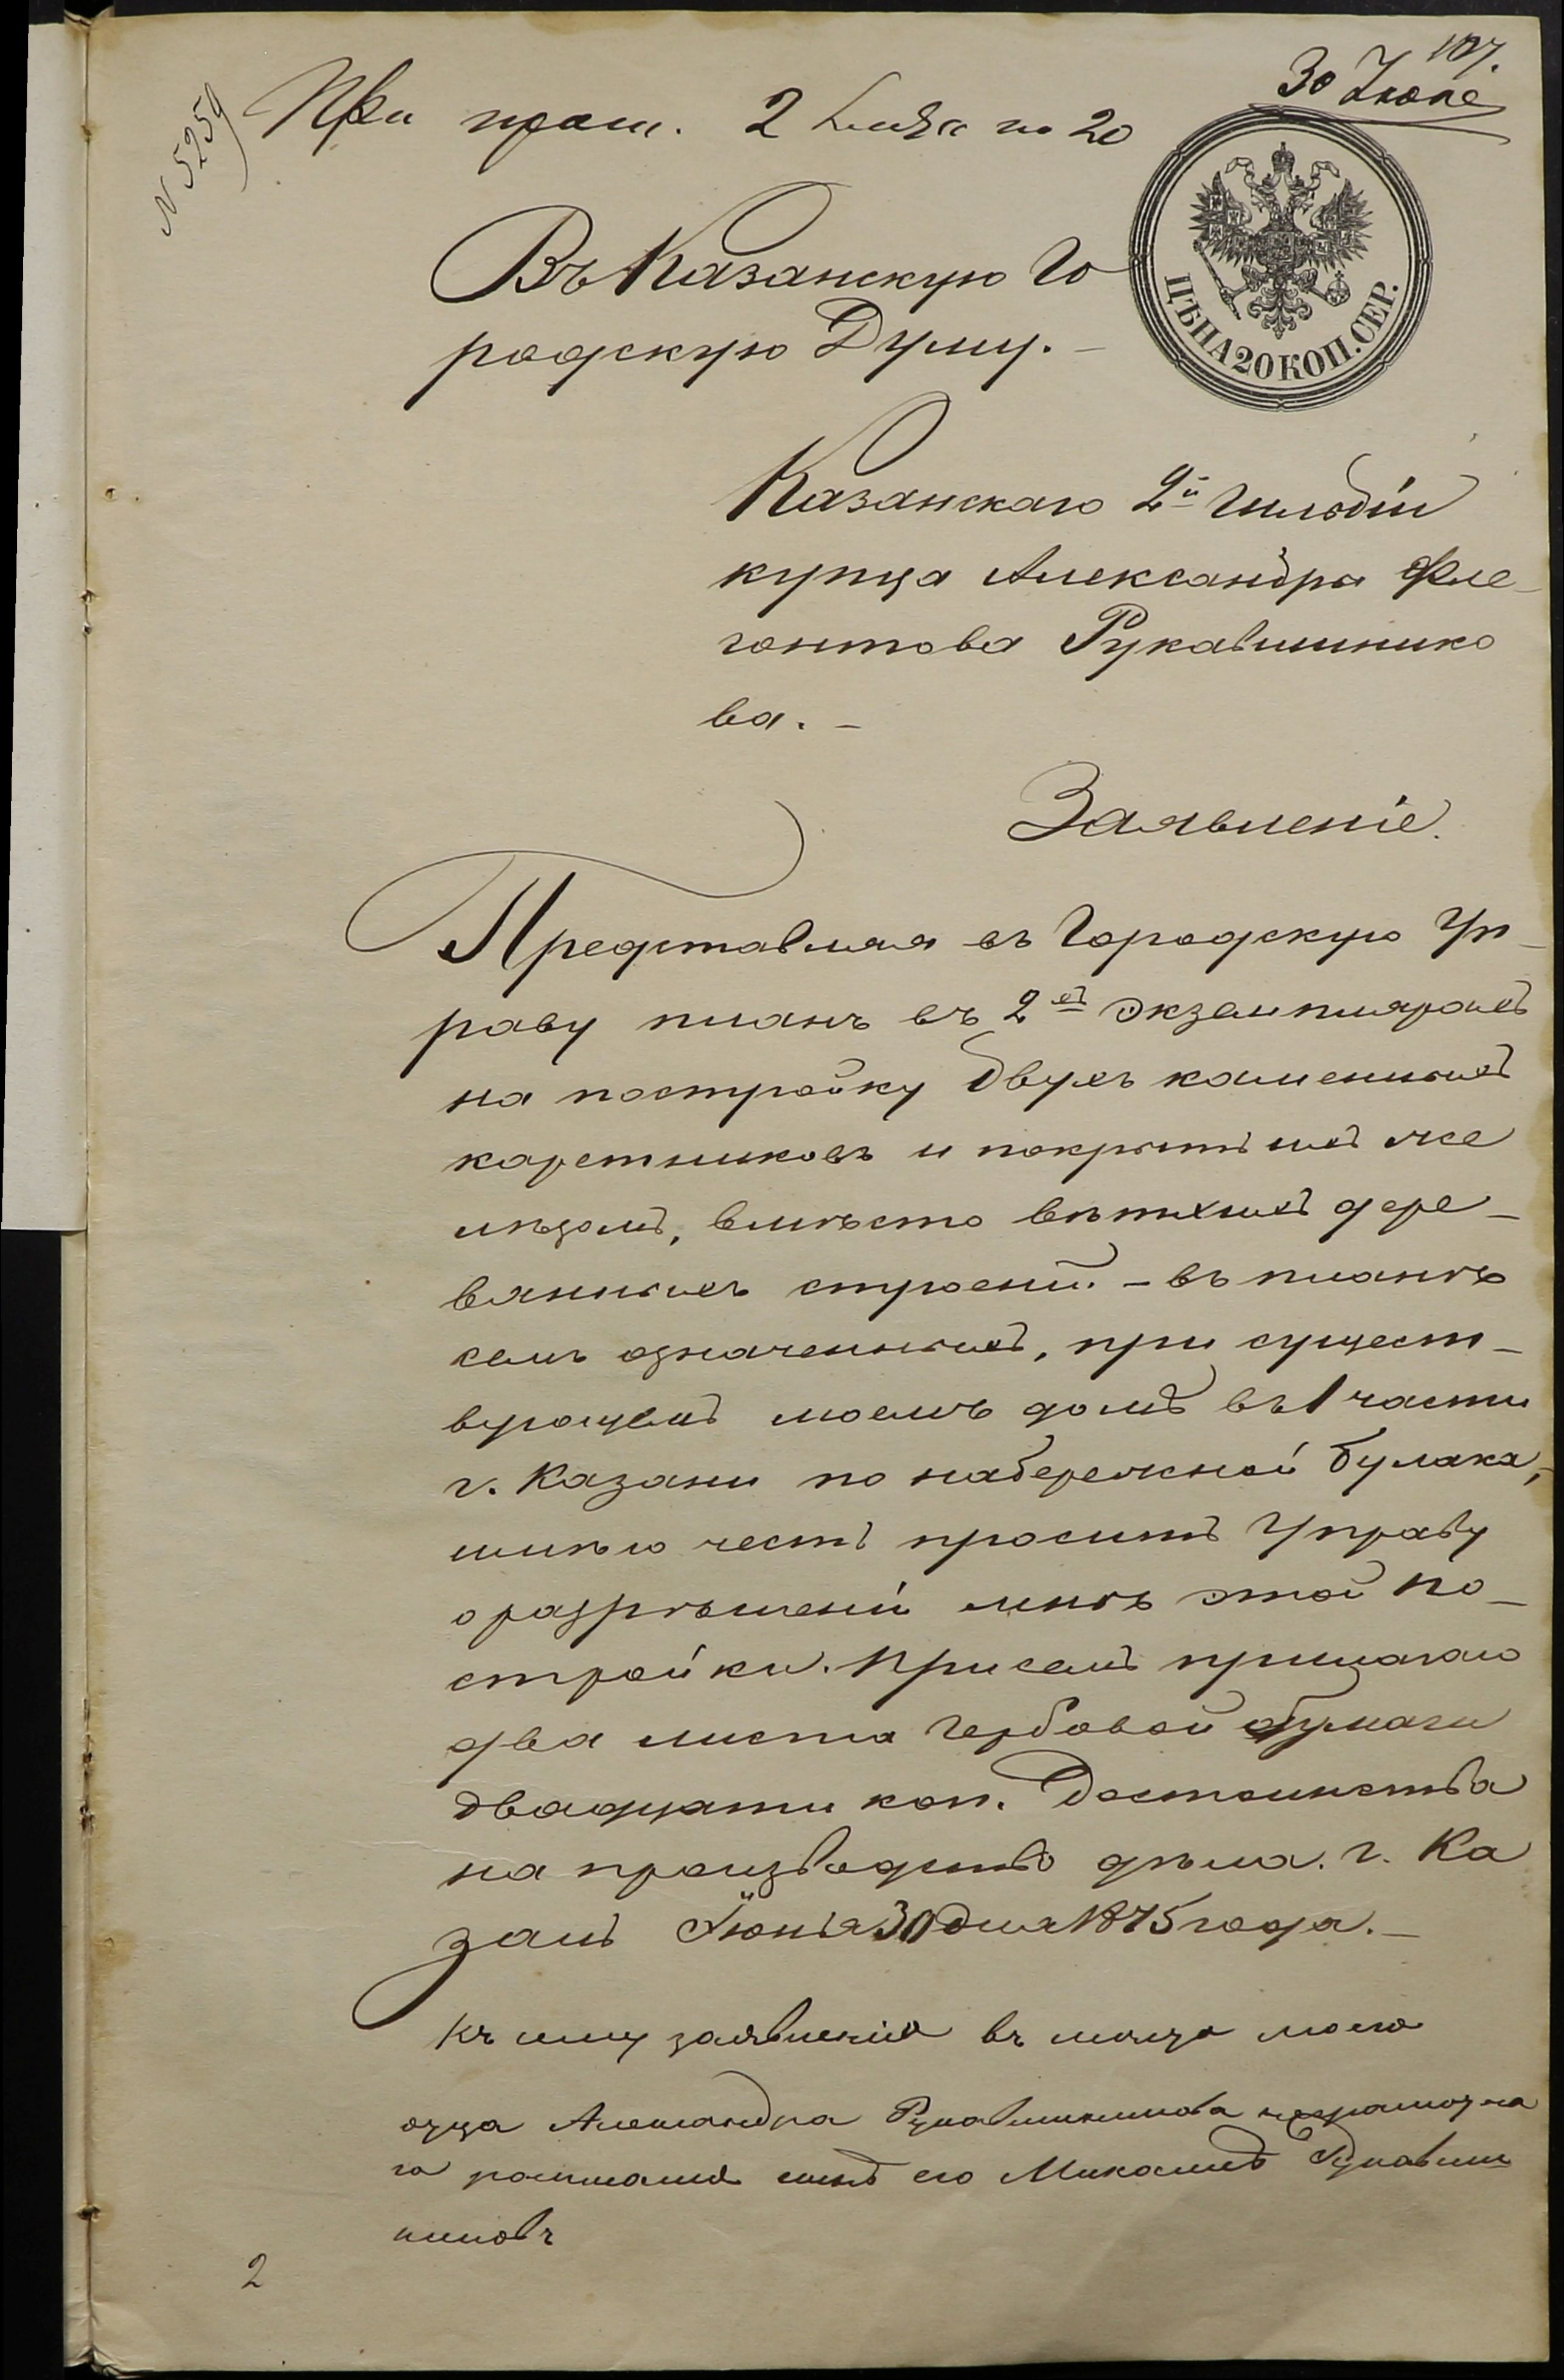 107.
30 Іюня
N 5259
При прош. 2 листа по 20
Въ Казанскую Го
родскую Думу. –
ЦѢНА 20 КОП. СЕР.
Казанскаго 2й гильдіи
купца Александра Фле-
гонтова Рукавишнико
ва. –
Заявленіе.
Представляя въ Городскую Уп-
раву планъ въ 2хъ экземплярахъ
на постройку двухъ каменныхъ
каретниковъ и покрытыхъ же
лѣзомъ, вмѣсто ветхихъ дере-
вянныхъ строеній. – въ планѣ
семъ означенныхъ, при сущест-
вующемъ моемъ домѣ въ 1 части
г. Казани по набережной Булака,-
имѣю честь просить Управу
о разрѣшеніи мнѣ этой по-
стройки. При семъ прилагаю
два листа гербовой бумаги
двадцати коп. Достоинства
на производство дѣла. г. Ка
зань Іюня 30 дня 1875 года. –
Къ сему заявленію въ мѣсто моего
отца Александра Рукавишникова неграмотна
го росписался сынъ его Михаилъ Рукавиш
никовъ
2